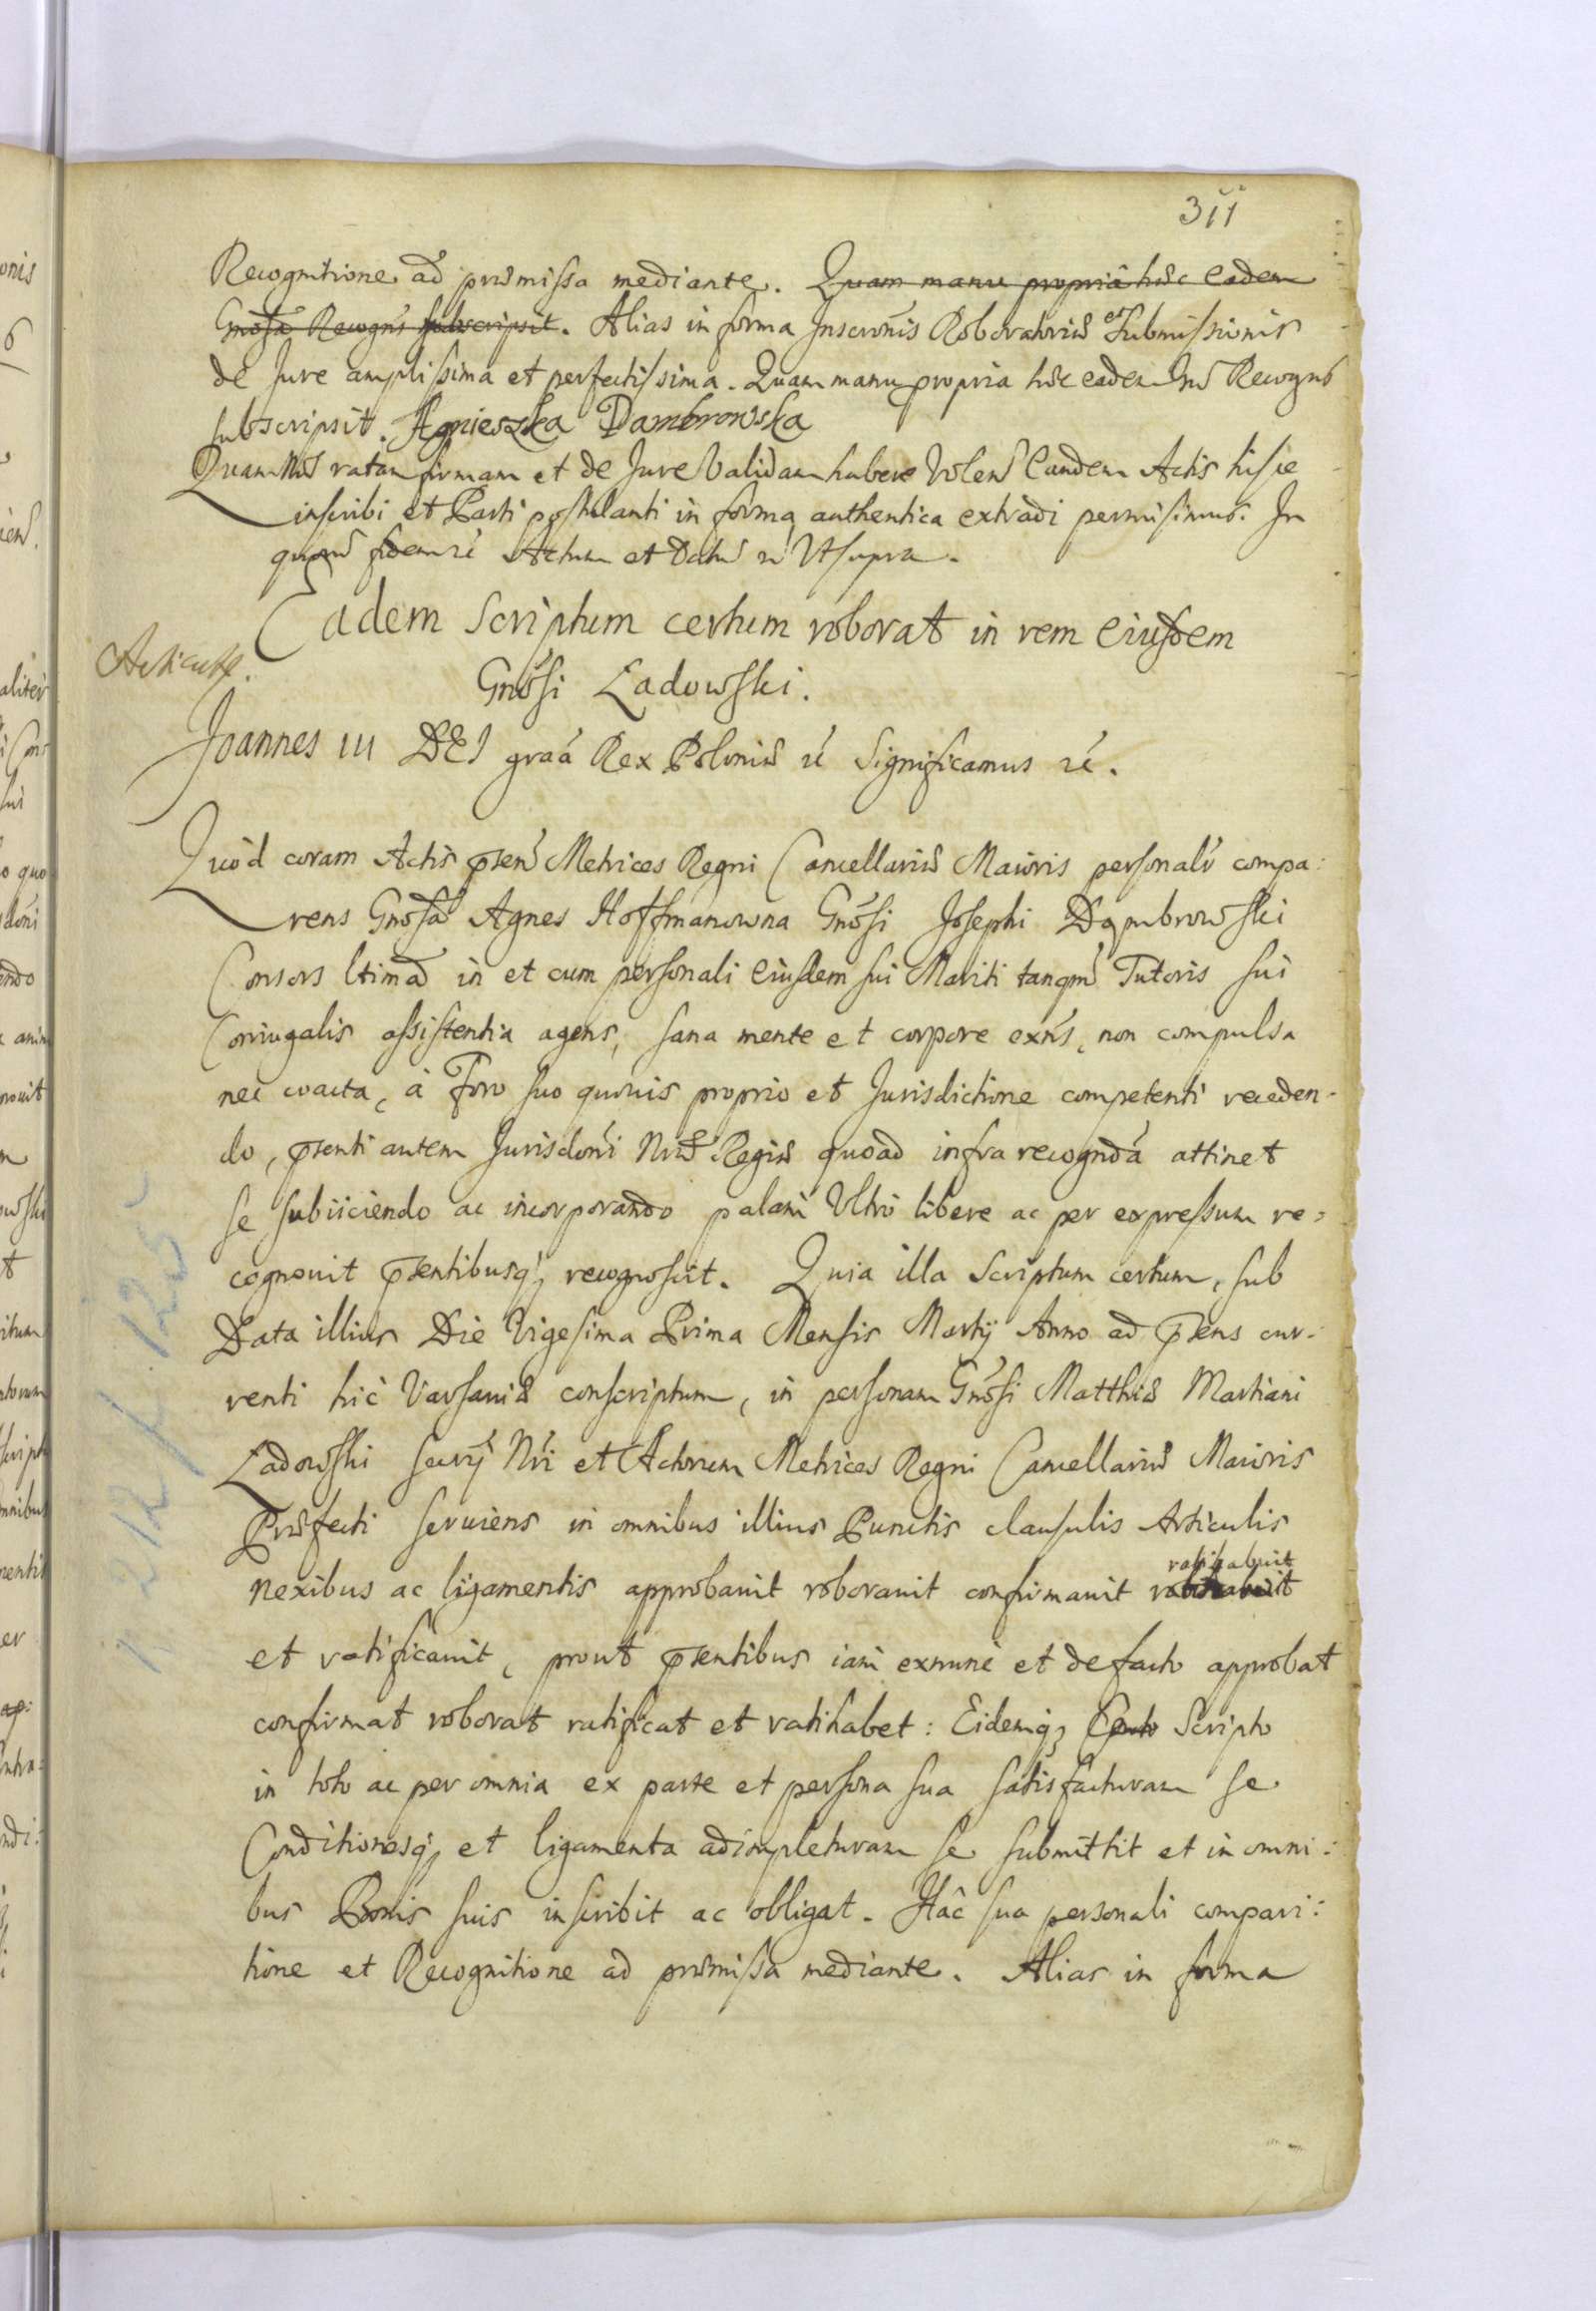 311
Recognitione ad præmissa mediante. Quam manu propriâ hæc eadem
Gnosa Recogns subscripsit. Alias in forma Inscronis Roboratoriæ et Submissionis
de Jure amplissima et perfectissima. Quam manu propria hæc eadem Recogns
subscripsit. Agnieszka Dambrowska
Quam Nos ratam firmam et de Jure Validam habere Volens Eandem Actis hisce
inscribi et Parti postulanti in forma authentica extradi permisimus. In
quorum fidem rć Actum et Datum rć Vt supra.
Eadem Scriptum certum roborat in rem Eiusdem
Gnósi Ładowski.
Joannes III DEI graâ Rex Poloniæ rć Significamus rć.
Quòd coram Actis psent Metrices Regni Cancellariæ Maioris personalr compa:
rens Gnosa Agnes Hoffmanowna Gnósi Josephi Dąmbrowski
Consors ltima in et cum personali Eiusdem sui Mariti tanqm Tutoris sui
Coniugalis assistentia agens, sana mente et corpore exns, non compulsa
nec coacta, à Foro suo quouis proprio et Jurisdictione competenti receden-
do, psenti autem Jurisdoni Nræ Regiæ quoad infra recognda attinet
se subiiciendo ac incorporando palam Vltro libere ac per expressum re-
cognouit psentibusq; recognoscit. Quia illa Scriptum certum, sub
Data illius Die Vigesima Prima Mensis Martij Anno ad psens cur-
renti hic Varsauiæ conscriptum, in personam Gnósi Matthiæ Martiani
Ładowski Secrij Nri et Actorum Metrices Regni Cancellariæ Maioris
Præfecti seruiens in omnibus illius Punctis clausulis Articulis
nexibus ac ligamentis approbauit roborauit confirmauit ratihabuit
et ratificauit, prout psentibus iam exnunc et defacto approbat
confirmat roborat ratificat et ratihabet: Eidemq; Scripto
in toto ac per omnia ex parte et persona sua satisfacturam se
Conditionesq; et ligamenta adimpleturam se submittit et in omni:
bus Bonis suis inscribit ac obligat. Hâc sua personali compari:
tione et Recognitione ad præmissa mediante. Alias in forma